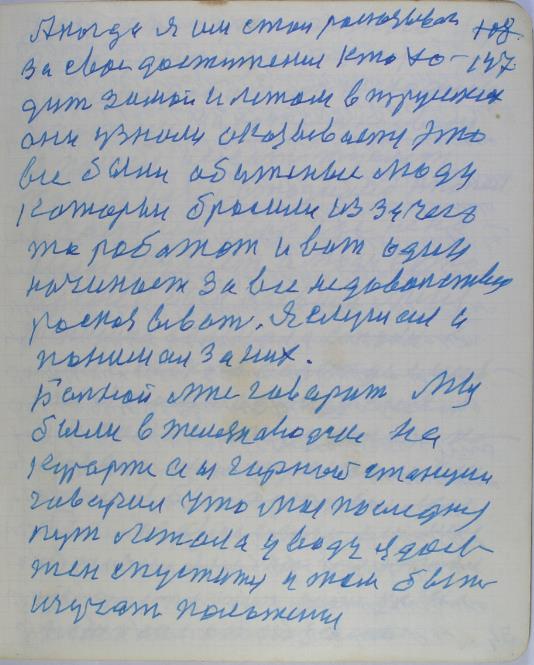 Аногда я им стал росказыват 108
за свои достижения Кто хо- 147
дит зимой и летом в трусиках
они узнали оказывается Это
все были обиженые люди
Которыи бросили из за чего
то работат и вот один
начинает за все недоволствия
росказыват. Я слушал и
понимал за них.
Болной мне говорит Мы
были в железноводске на
Курорте а я горный станции
говорил Что мое последния
пут летом а у воду я дол-
жен спустится и там быть
изучат положения